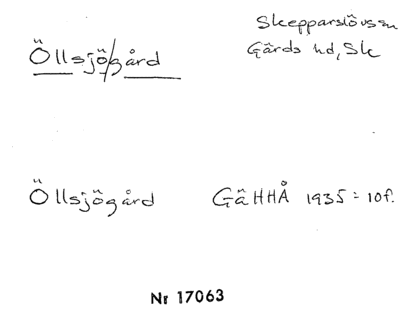 Öllsjögård
Skepparslövs sn
Gärds hd, Sk
Öllsjögård GäHHÅ 1935 = 10 f.
Nr 17063